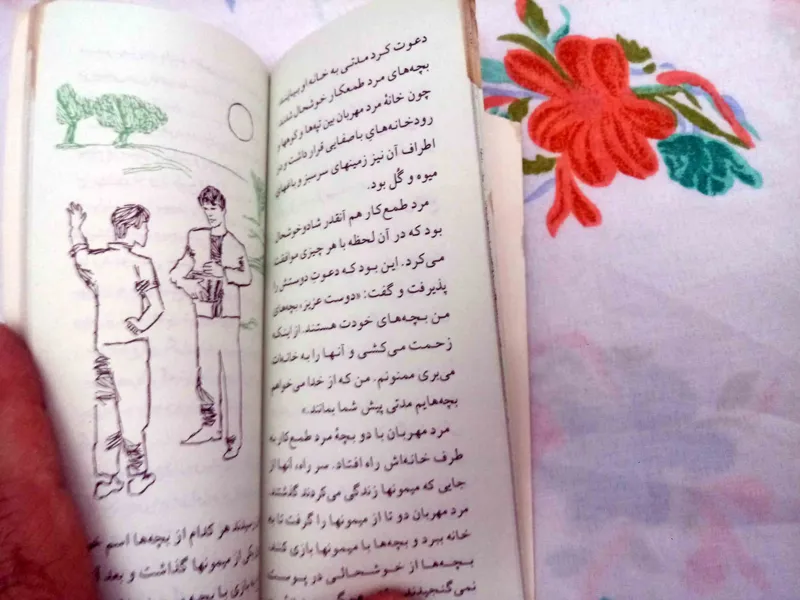 دعوت کرد مدتی به خانه او بیایند.
بچه‌های مرد طمعکار خوشحال شدند
چون خانهٔ مرد مهربان بین تپه‌ها و کوهها و
رودخانه‌های باصفایی قرار داشت و در
اطراف آن نیز زمینهای سرسبز و باغهای
میوه و گُل بود.
مرد طمع‌کار هم آنقدر شاد و خوشحال
بود که در آن لحظه با هر چیزی موافقت
می‌کرد. این بود که دعوتِ دوستش را
پذیرفت و گفت: «دوست عزیز، بچه‌های
من بچه‌های خودت هستند. از اینکه
زحمت می‌کشی و آنها را به خانه‌ات
می‌بری ممنونم. من که از خدا می‌خواهم
بچه‌هایم مدتی پیش شما بمانند.»
مرد مهربان با دو بچهٔ مرد طمع‌کار به
طرف خانه‌اش راه افتاد. سر راه، آنها از
جایی که میمونها زندگی می‌کردند گذشتند.
مرد مهربان دو تا از میمونها را گرفت تا به
خانه ببرد و بچه‌ها با میمونها بازی کنند.
بچه‌ها از خوشحالی در پوست
نمی‌گنجیدند
هر کدام از بچه‌ها اسم
از میمونها گذاشت و بعد
بازی با